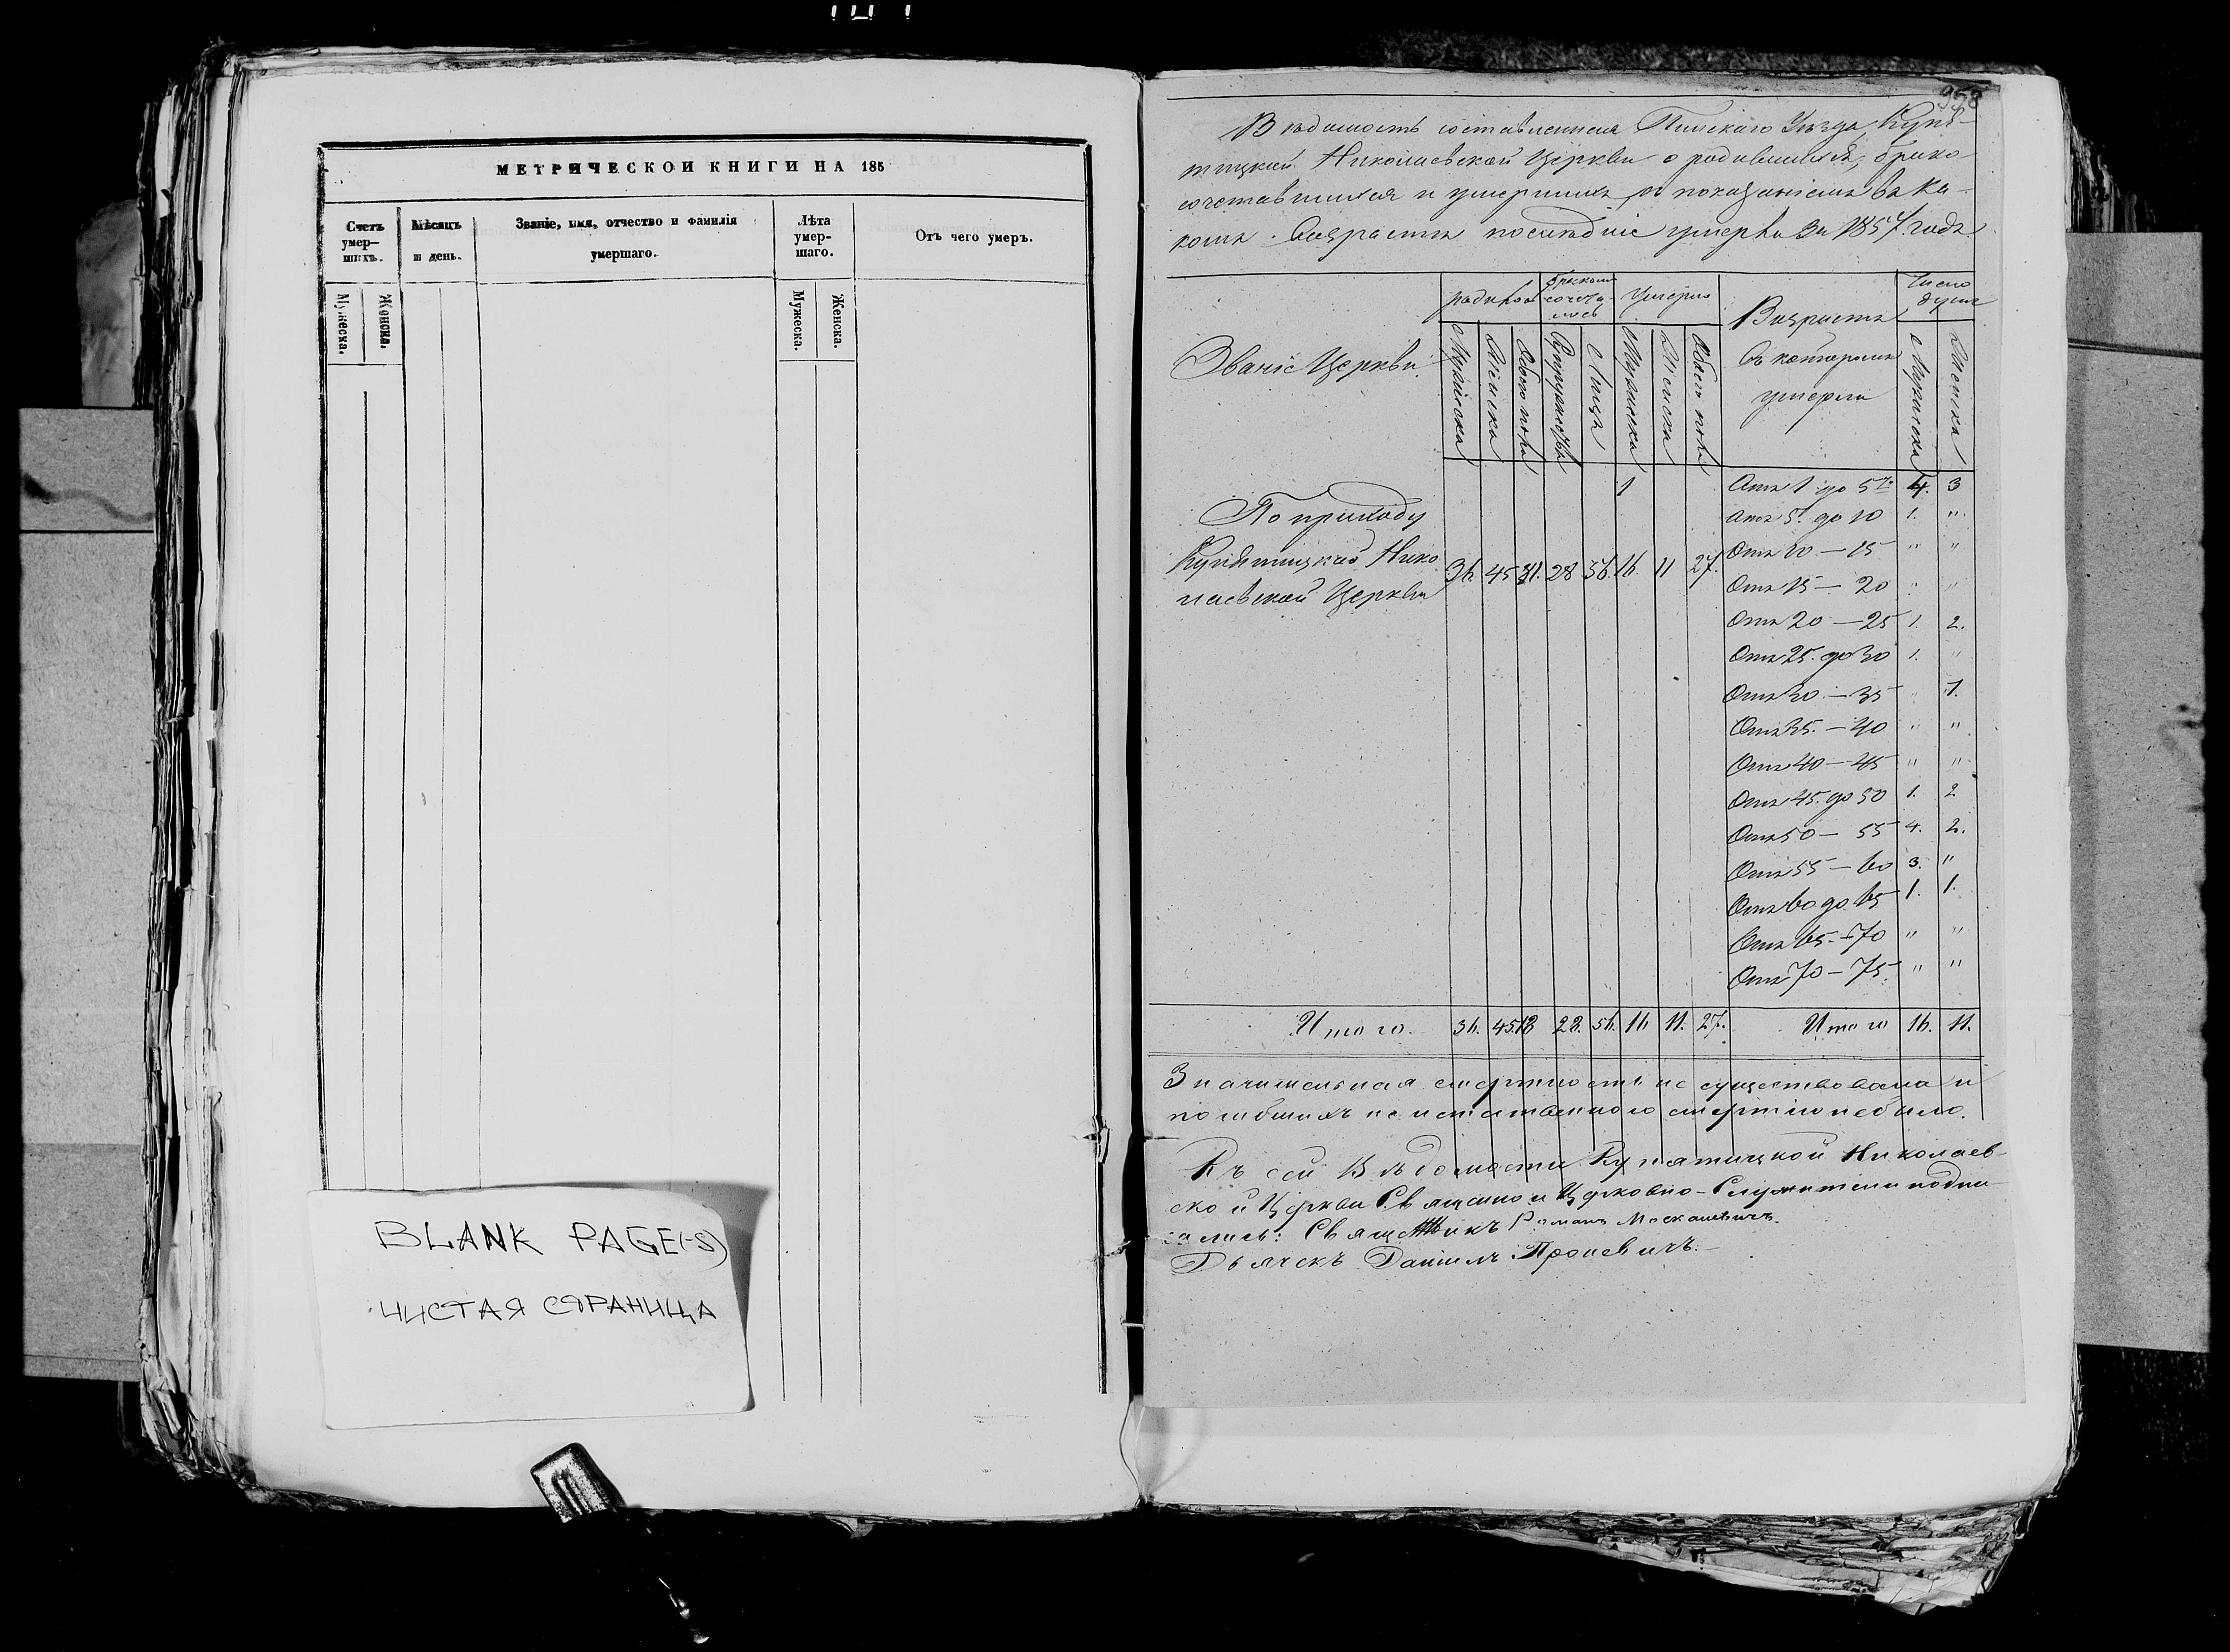 МЕТРИЧЕСКОЙ КНИГИ НА 185
Счетъ умер— шихъ.
Мѣсяцъ и день.
Званіе, имя, отчество и фамилія умершаго.
Лѣта умер- шаго.
Отъ чего умеръ.
Мужеска.
Женска.
Мужеска.
Женска.
BLANK PAGE(-S)
ЧИСТАЯ СТРАНИЦА
958
Вѣдомость составленная Пинскаго Уѣзда, Купя-
тицкой Николаевской Церкви о родившихся, брако
сочетавшихся и умершихъ, съ показаніемъ въ ка-
комъ возрастѣ послѣдніе умерли за 1857 годъ.
Званіе Церкви
родилось
бракомъ сочета- лись
Умерло
Возрастъ
въ которомъ
умерли
Число душъ
Мужеска
Женска
Обоего пола
Супружествъ
Лицъ
Мужеска
Женска
Обоего пола
Мужеска
Женска
По приходу
Купятицкой Нико
лаевской Церкви
36. 45 81. 28 56. 16. 11 27.
Отъ 1 до 5ти 4. 3
Отъ 5. до 10 1. "
Отъ 10 — 15 " "
Отъ 15 — 20 " "
Отъ 20 — 25 1. 2.
Отъ 25. до 30 1. "
Отъ 30 — 35 " 1.
Отъ 35. — 40 " "
Отъ 40 — 45 " "
Отъ 45. до 50 1. 2
Отъ 50 — 55 4. 2.
Отъ 55 — 60 3. "
Отъ 60 до 65 1. 1.
Отъ 65. — 70 " "
Отъ 70 — 75 " "
Итого. 36. 45. 28. 56. 16 11. 27. Итого 16. 11.
Значительная смертность не существовала и
погибшихъ неистственною смертію небыло.
Къ сей Вѣдомости Купятицкой Николаев-
ской Церкви Священно и Церковно-Служители подпи-
сались: Священникъ Романъ Москалевичъ.
Дьячекъ Даніилъ Проневичъ.